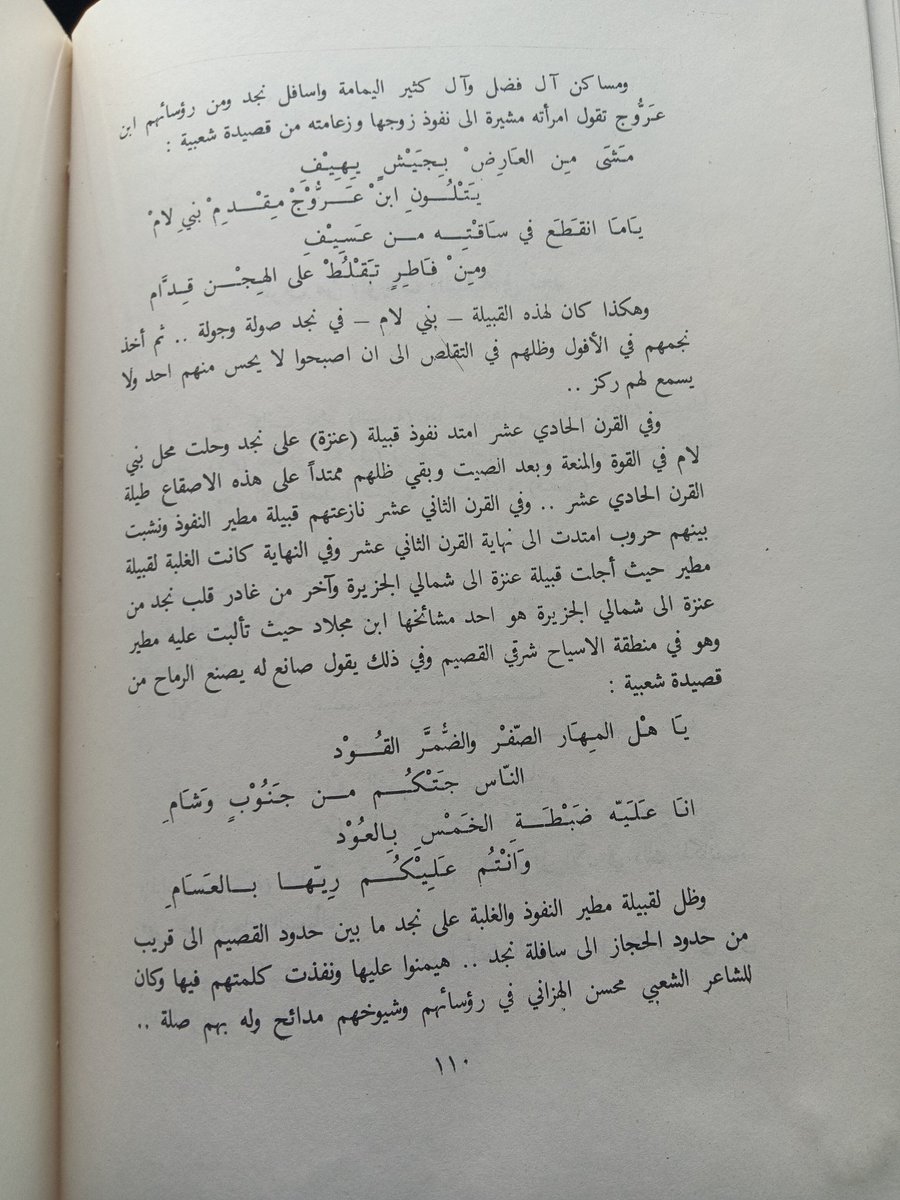 ومساكن آل فضل وآل كثير اليمامة واسافل نجد ومن رؤسائهم ابن
عَرُّوج تقول امرأته مشيرة الى نفوذ زوجها وزعامته من قصيدة شعبية :
مَشَى مِن العَارِضْ بِجَيْشٍ يِهِيْفِ
يَتْلُونِ ابنْ عَرُّوْجْ مِقْدِمْ بَنيِ لامْ
يَامَا انقَطَعَ في سَاقْتِه من عَسِيْفِ
ومِنْ فَاطِرٍ تَبَقْلُطْ على الهِجْن قِدَّام
وهكذا كان لهذه القبيلة – بني لام – في نجد صولة وجولة .. ثم أخذ
نجمهم في الأفول وظلهم في التقلص الى ان اصبحوا لا يحس منهم احد ولا
يسمع لهم ركز ..
وفي القرن الحادي عشر امتد نفوذ قبيلة (عنزة) على نجد وحلت محل بني
لام في القوة والمنعة وبعد الصيت وبقي ظلهم ممتداً على هذه الاصقاع طيلة
القرن الحادي عشر .. وفي القرن الثاني عشر نازعتهم قبيلة مطير النفوذ ونشبت
بينهم حروب امتدت الى نهاية القرن الثاني عشر وفي النهاية كانت الغلبة لقبيلة
مطير حيث أجلت قبيلة عنزة الى شمالي الجزيرة وآخر من غادر قلب نجد من
عنزة الى شمالي الجزيرة هو احد مشائخها ابن مجلاد حيث تألبت عليه مطير
وهو في منطقة الاسياح شرقي القصيم وفي ذلك يقول صانع له يصنع الرماح من
قصيدة شعبية :
يَا هْل المِهَار الصّفْر والضُّمَّر القُوْد
النّاس جَتْكُم من جَنُوْبٍ وَشَامِ
انَا عَلَيّه ضَبْطَةِ الخَمْسِ بِالعُوْد
وَانْتُم عَلِيْكُم رِيّها بالعَسَامِ
وظل لقبيلة مطير النفوذ والغلبة على نجد ما بين حدود القصيم الى قريب
من حدود الحجاز الى سافلة نجد .. هيمنوا عليها ونفذت كلمتهم فيها وكان
للشاعر الشعبي محسن الهزاني في رؤسائهم وشيوخهم مدائح وله بهم صلة ..
١١٠